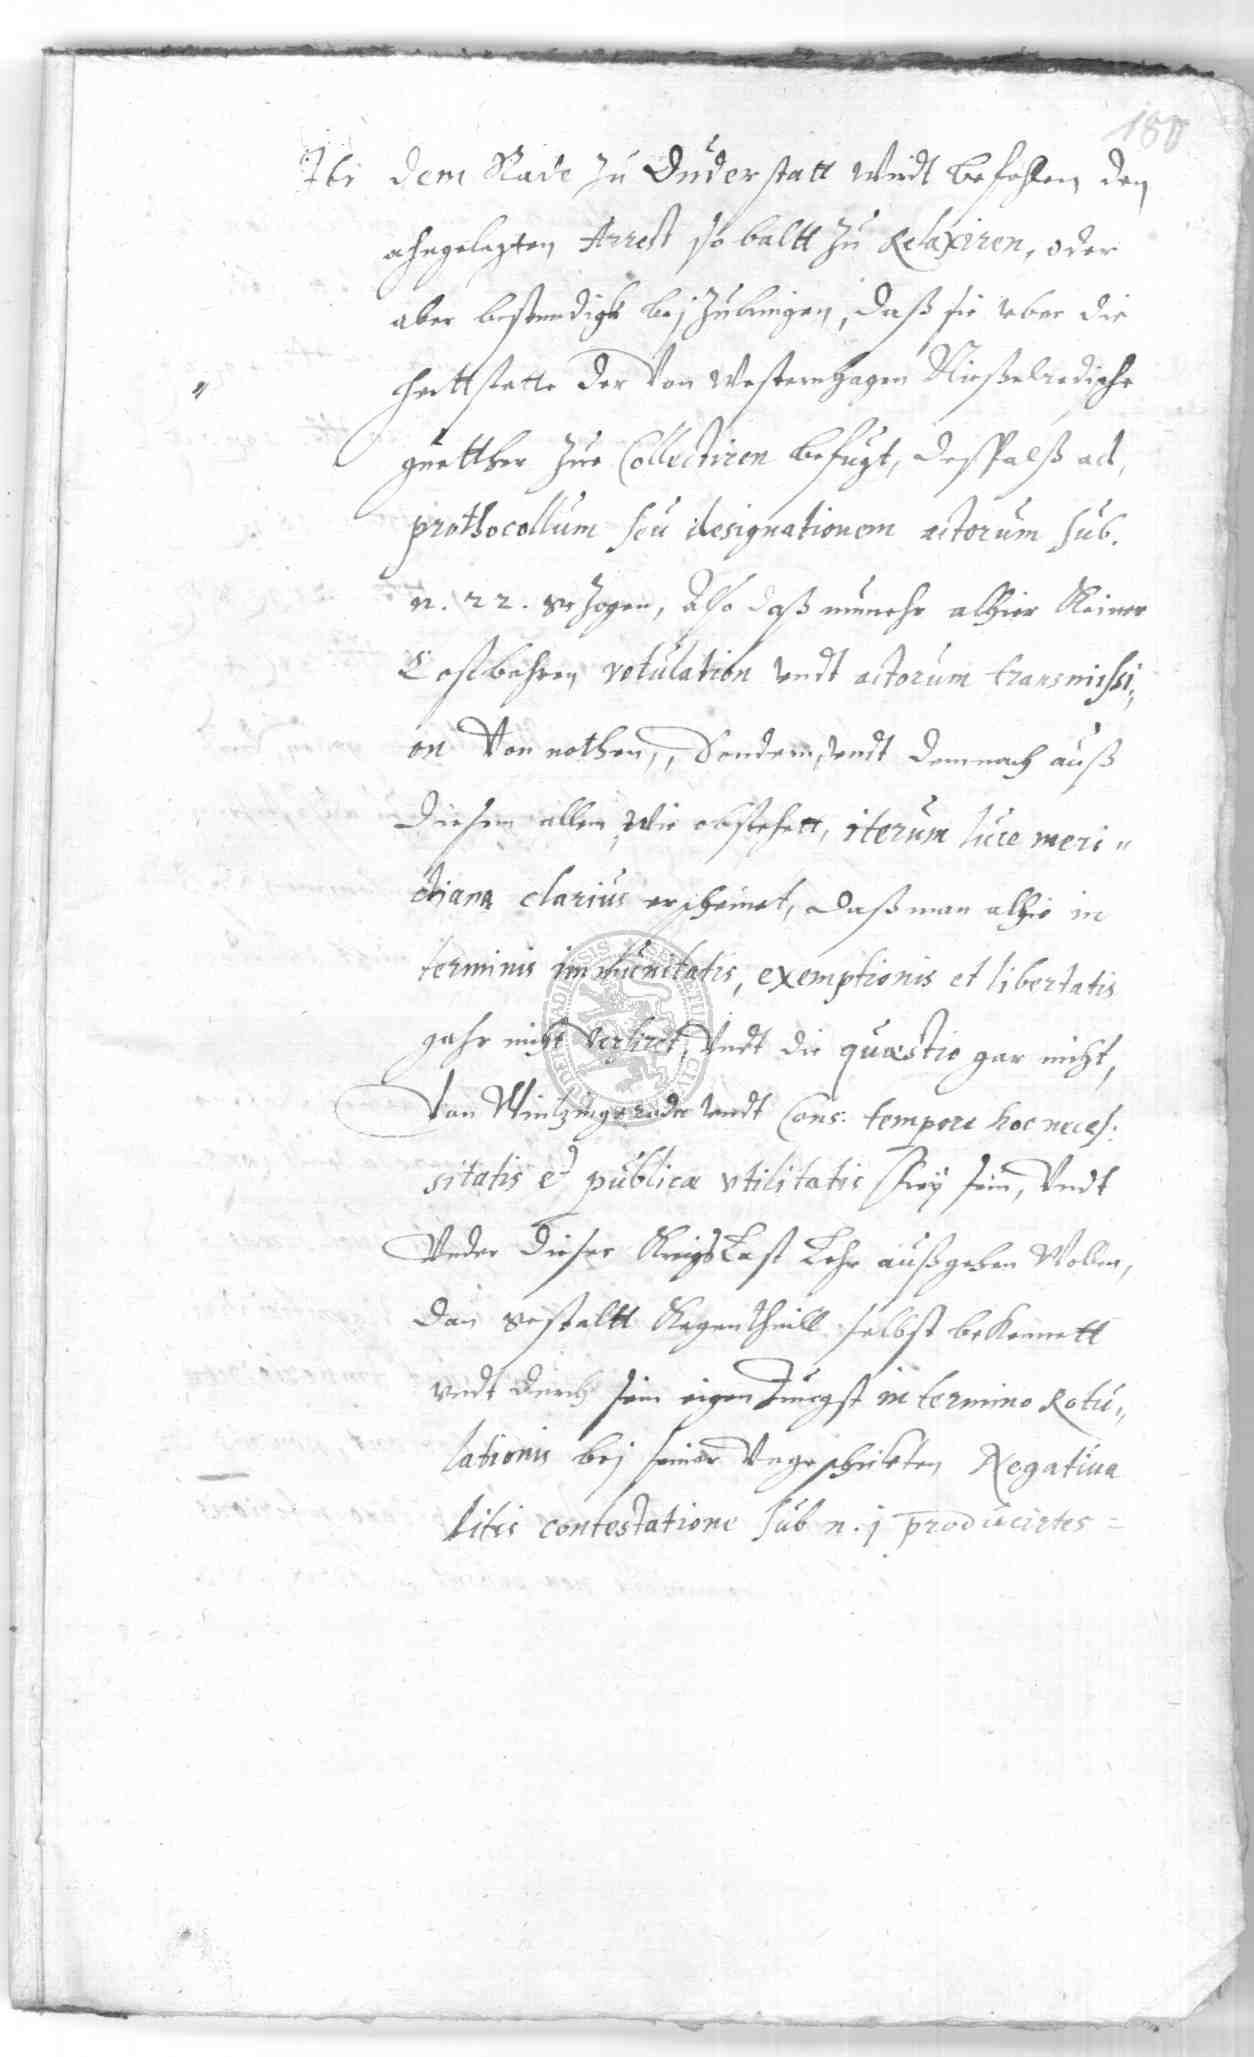 180
Ibi dem Rade zu Duderstatt wirdt befohlen den
ahngelegten Arrest so baltt zu Relaxiren, oder
aber bestendigk bej zubringen, daß sie uber die
hertstette der von Westernhagen Nießelredische
guetther zue Collectiren befugt, desfalß ad
prothocollum seu designationem actorum sub.
n. 22. gezogen, Also daß nunnehr alhier keiner
Costbahren rotulation undt actorum transmissi„
on von nothen, Sondern, undt demnach auß
diesem allem wie obstehett, iterum luce meri„
diana clarius erscheinet, daß man alhie in
terminis immunitatis, exemptionis et libertatis
gahr nicht versiret, undt die quæstio gar nicht,
Von Wintzingerode undt Cons: tempore hoc neces:
sitatis et publicæ utilitatis frey sein, undt
Under dieser KriegsLast Lehr außgehen Wollen,
dan gestaltt Gegentheill selbst bekennett
undt durch sein eigen Jungst in termino Rotu„
lationis bej seiner Ungeschickten Negativa
litis contestatione sub n. j producirtes =